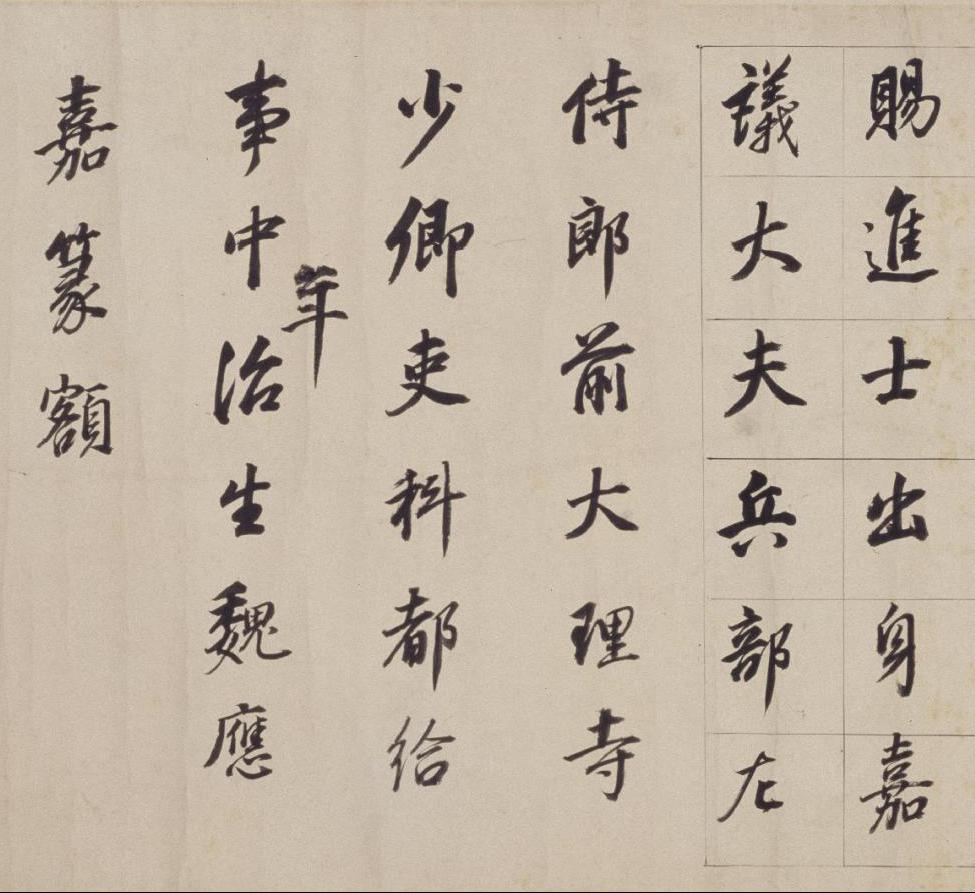 賜進士出身嘉
議大夫兵部左
侍郎前大理寺
少卿吏科都給
事中年治生魏應
嘉篆額